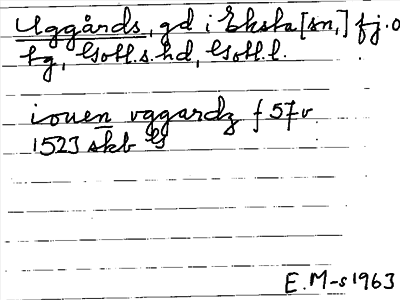 Uggårds, gd i Eksta [sn,] fj. o
tg, Gotl. s. hd, Gotl. l.
iouen vggardz f 57v.
1523 skb G
E. M-s 1963